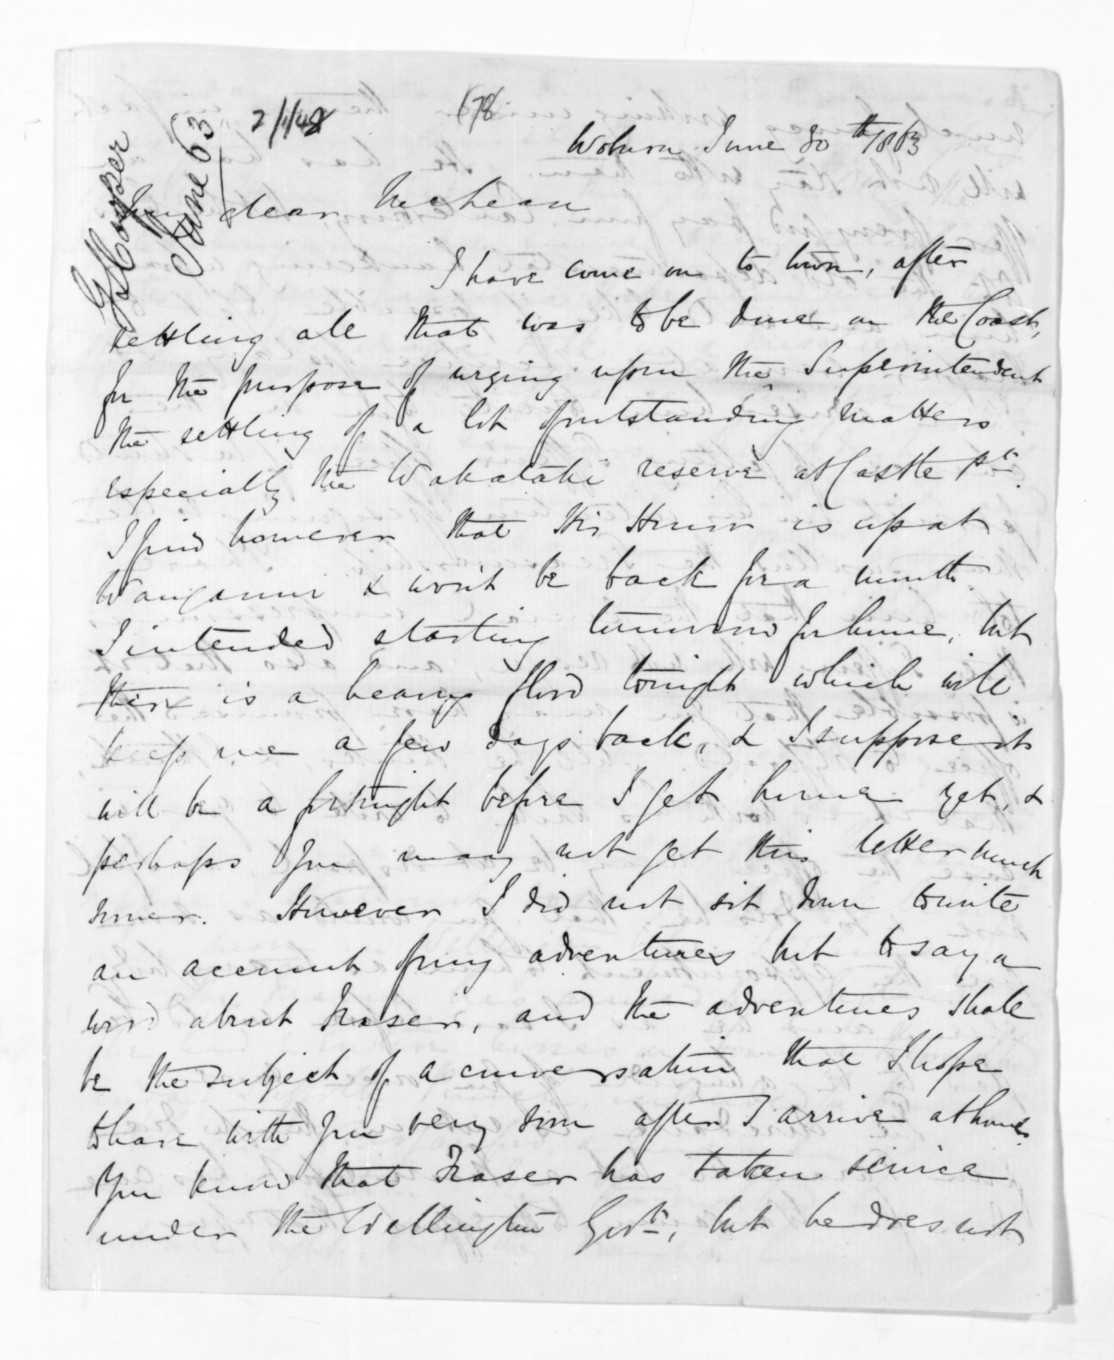 678
G S Cooper
June 63
Woburn June 30th/1863
My dear McLean
I have come on to town, after
settling all that was to be done on the Coast,
for the purpose of urging upon the Superintendent
the settling of a lot of outstanding matters
especially the Wakataki reserve at Castle Pt.
I find however that His Honor is up at
Wanganui & won't be back for a month.
I intended starting tomorrow for home, but
there is a heavy flood tonight which will
keep me a few days back, & I suppose it
will be a fortnight before I get home yet, &
perhaps you may not get this letter much
sooner. However I did not sit down to write
an account of my adventures but to say a
word about Fraser, and the adventures shall
be the subject of a conversation that I hope
to have with you very soon after I arrive at home.
You know that Fraser has taken service
under the Wellington Govt., but he does not